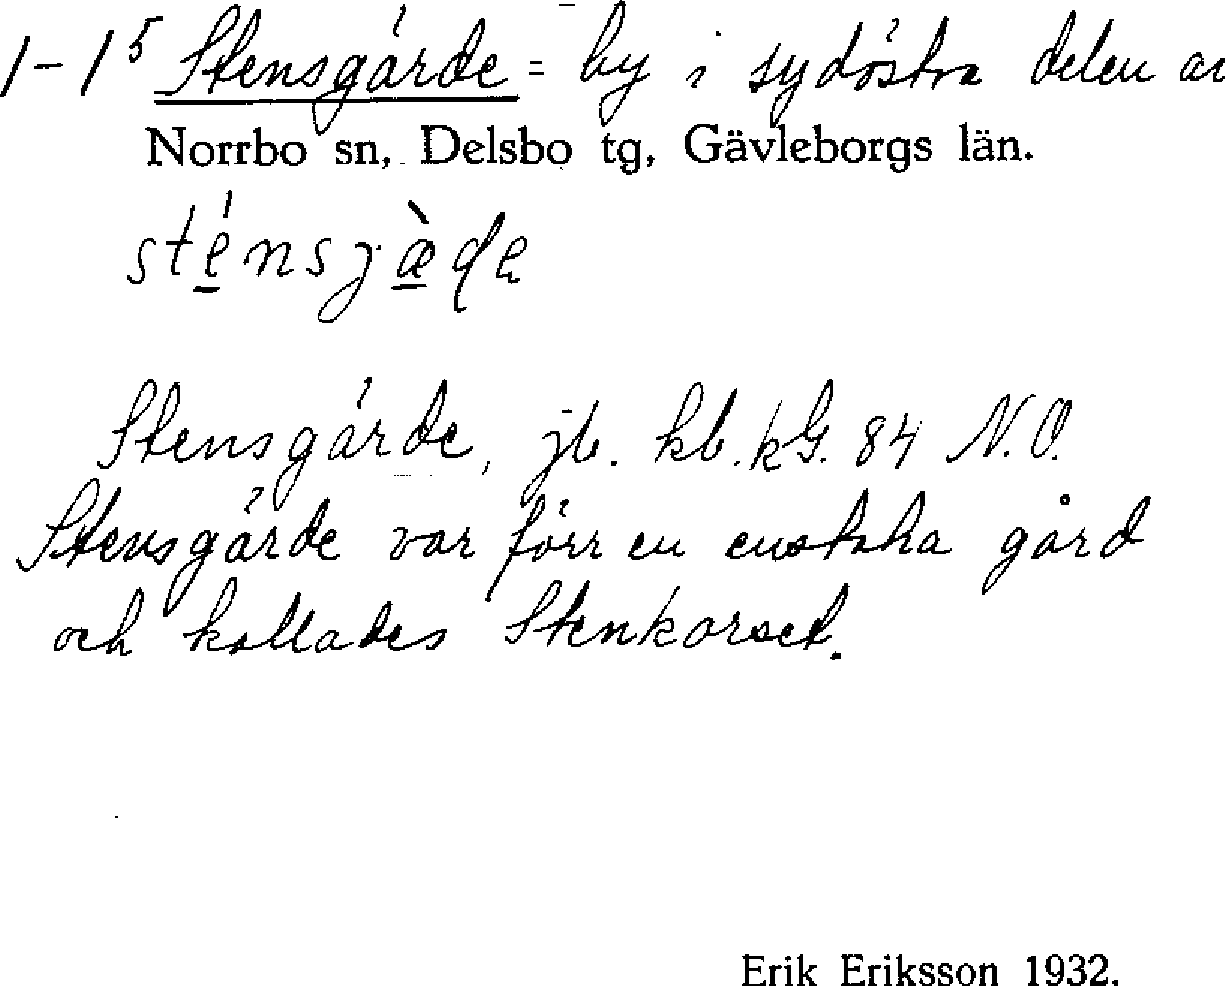 1-1⁵ Stensgärde = by i sydöstra delen av
Norrbo sn, Delsbo tg, Gävleborgs län.
sténsjæ̀de
Stensgärde, jb. kb. kG. 84 N.O.
Stensgärde var förr en enstaka gård
och kallades Stenkorset.
Erik Eriksson 1932.